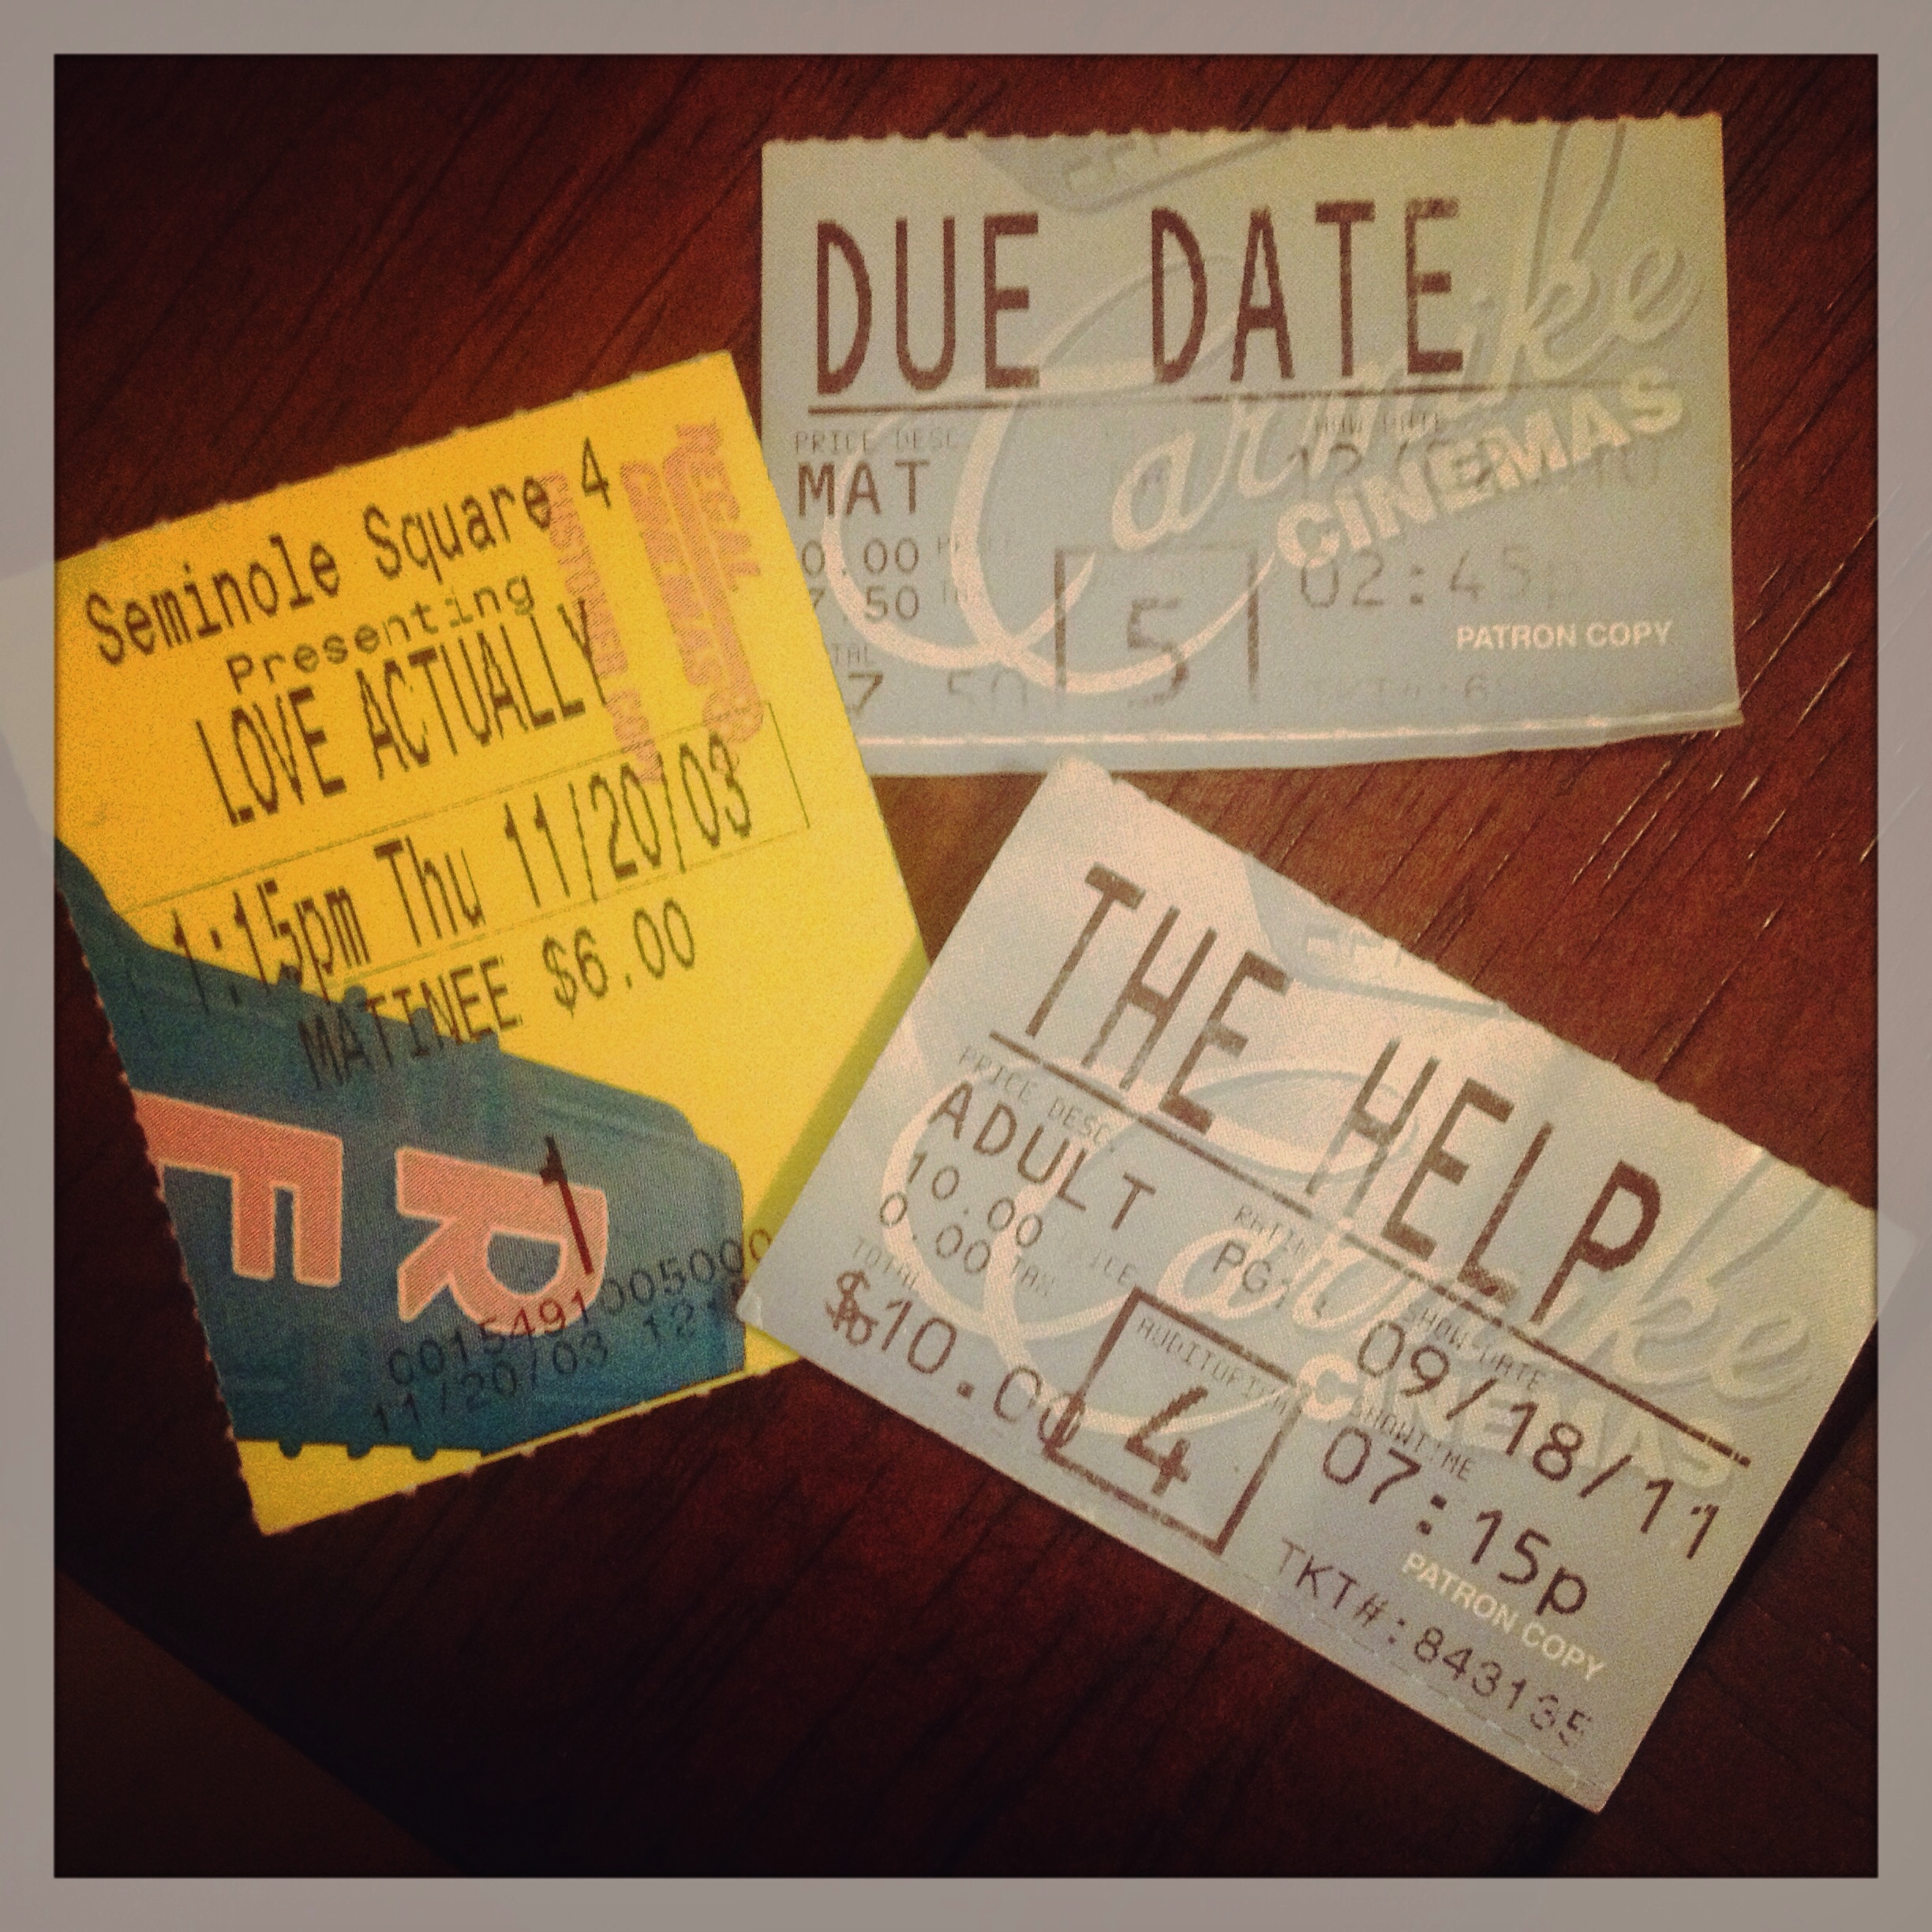 DUE DATE
Carmike
CINEMAS
PRICE DESC
MAT
0.00
7.50
5
02:45p
7 50
PATRON COPY
Seminole Square 4
Presenting
LOVE ACTUALLY
1:15pm Thu 11/20/03
MATINEE $6.00
REGAL
CINEMAS
CUSTOMER COPY
R
F
1
0015491005000
11/20/03
THE HELP
Carmike
CINEMAS
PRICE DESC.
ADULT
10.00
0.00 TAX
TOTAL
$10.00
AUDITORIUM
4
SHOW DATE
09/18/11
SHOWTIME
07:15p
PATRON COPY
TKT#:843135